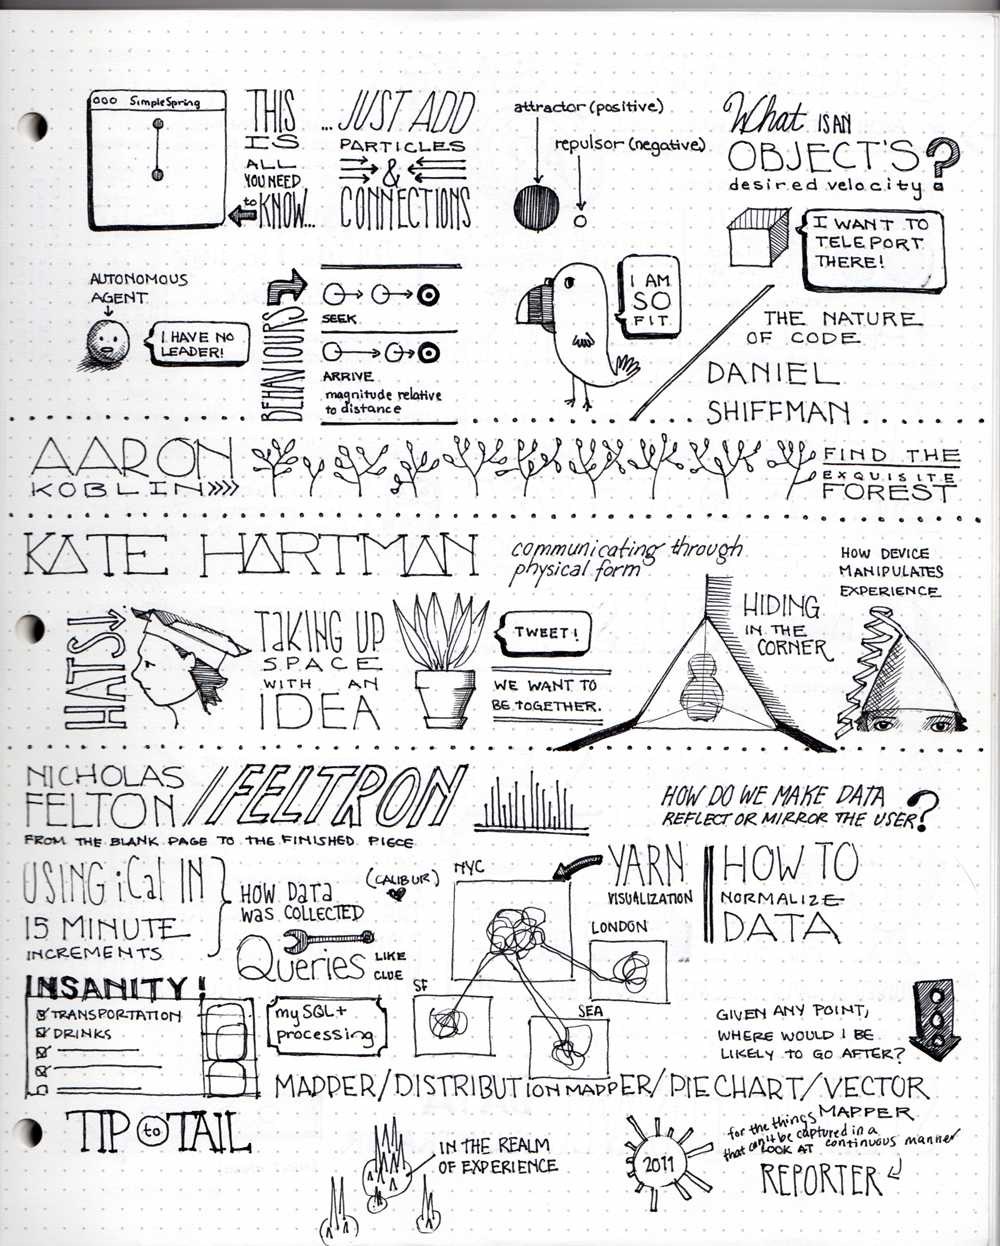 SimpleSpring
THIS
IS
ALL
YOU NEED
to KNOW...
...JUST ADD
PARTICLES
&
CONNECTIONS
attractor (positive)
repulsor (negative)
What IS AN
OBJECT'S ?
desired velocity
I WANT TO
TELEPORT
THERE!
AUTONOMOUS
AGENT
I HAVE NO
LEADER!
BEHAVIOURS
SEEK
ARRIVE
magnitude relative
to distance
I AM
SO
FIT
THE NATURE
OF CODE
DANIEL
SHIFFMAN
AARON
KOBLIN
FIND THE
EXQUISITE
FOREST
KATE HARTMAN
communicating through
physical form
HOW DEVICE
MANIPULATES
EXPERIENCE
HATS!
TAKING UP
SPACE
WITH AN
IDEA
TWEET!
WE WANT TO
BE TOGETHER.
HIDING
IN THE
CORNER
NICHOLAS
FELTON / FELTRON
FROM THE BLANK PAGE TO THE FINISHED PIECE
HOW DO WE MAKE DATA
REFLECT OR MIRROR THE USER?
USING iCal IN
15 MINUTE
INCREMENTS
HOW DATA
WAS COLLECTED
(CALIBUR)
Queries LIKE
CLUE
NYC
YARN
VISUALIZATION
LONDON
SF
SEA
HOW TO
NORMALIZE
DATA
INSANITY!
TRANSPORTATION
DRINKS
mySQL+
processing
GIVEN ANY POINT,
WHERE WOULD I BE
LIKELY TO GO AFTER?
MAPPER/DISTRIBUTION MAPPER/PIECHART/VECTOR
MAPPER
TIP to TAIL
IN THE REALM
OF EXPERIENCE
2011
for the things
that can't be captured in a
continuous manner
LOOK AT
REPORTER